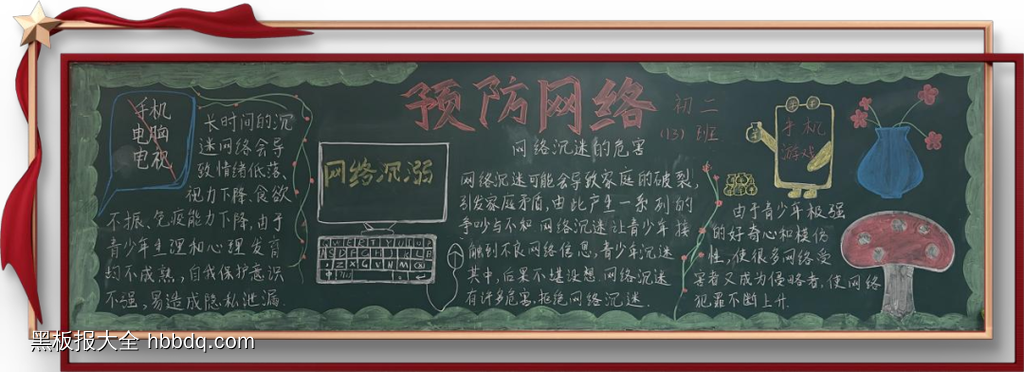 预防网络
初二
(13) 班
手机
电脑
电视
长时间的沉
迷网络会导
致情绪低落、
视力下降、食欲
不振、免疫能力下降,由于
青少年生理和心理发育
的不成熟,自我保护意识
不强,易造成隐私泄漏.
网络沉溺
网络沉迷的危害
网络沉迷可能会导致家庭的破裂,
引发家庭矛盾,由此产生一系列的
争吵与不和 网络沉迷让青少年接
触到不良网络信息,青少年沉迷
其中,后果不堪设想.网络沉迷
有许多危害,拒绝网络沉迷.
手机
游戏
由于青少年极强
的好奇心和模仿
性,使很多网络受
害者又成为侵略者,使网络
犯罪不断上升.
黑板报大全 hbbdq.com